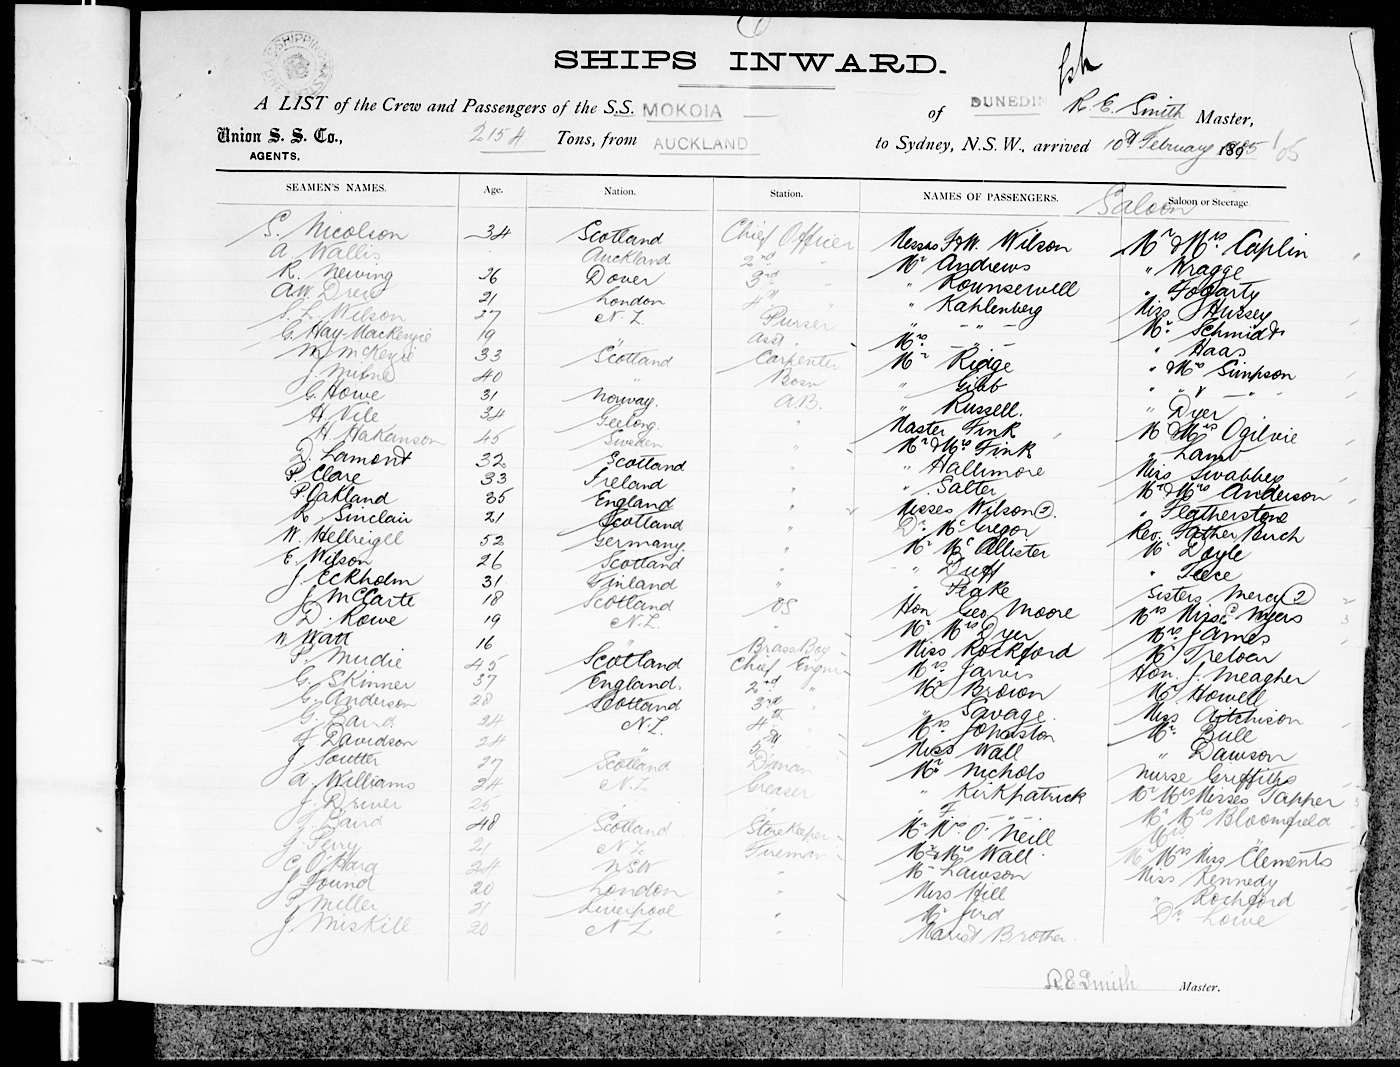 SHIPS INWARD.
A LIST of the Crew and Passengers of the S.S. MOKOIA of DUNEDIN R. E. Smith Master,
Union S. S. Co., AGENTS. 2154 Tons, from AUCKLAND to Sydney, N.S.W., arrived 10th February 189 05
SEAMEN'S NAMES. Age. Nation. Station. NAMES OF PASSENGERS. Saloon or Steerage.
Saloon
S. Nicolson 34 Scotland Chief Officer Messrs Wilson Mr & Mrs Caplin
A Wallis Auckland 2nd " Mr Andrews " Wragge
R. Newing 26 Dover 3rd " " Rounsewell " Fogarty
A.W. Drew 21 London 4th " " Kahlenberg Miss Hussey
S. L. Wilson 27 N.Z. Purser Mrs - " - Mr. Schmidt
G. Hay-MacKenzie 19 " Asst " Mr Ridge " Haas
M. McKenzie 33 Scotland Carpenter " Gibb " & Mrs Simpson
J. Milne 40 " Bosn " Russell. " "
G. Howe 31 Norway. A.B. Master Fink " Dyer
H Vile 34 Geelong. " Mr & Mrs Fink Mr & Mrs Ogilvie
H. Hakanson 45 Sweden " " Hallimore " Lamb
D. Lamont 32 Scotland " " Salter Miss Swabbey
P. Clare 33 Ireland " Misses Wilson (2). Mr & Mrs Anderson
P. Oakland 35 England " Dr McGregor " Featherstone
R. Sinclair 21 Scotland " Mr McAllister Rev. Father Birch
W. Hellriegel 52 Germany. " " Duff Mr Doyle
E. Wilson 26 Scotland " " Peake "
J. Eckholm 31 Finland " Hon Geo Moore Sisters Mercy (2)
J. McCarte 18 Scotland OS Mr Mrs Dyer Mrs Misses Myers
D. Rowe 19 N.Z. " Miss Rockford Mrs James
W Watt 16 " Brass Boy Mrs Jarvis Mr Treloar
P. Mudie 45 Scotland Chief Engnr Mr Brown Hon. J. Meagher
G. Skinner 37 England. 2nd " " Savage. Mr Howell
G. Anderson 28 Scotland 3rd " Mrs Johnston Miss Aitchison
G. Baird 24 N.Z. 4th " Miss Wall Mr. Bull
J Davidson 24 " 5th " Mr Nichols " Dawson
J Soutter 27 Scotland D'man " Kirkpatrick Nurse Griffiths
A. Williams 34 N.Z Greaser Mr & Mrs Misses Tapper
J. Driver 25 " " Mr Mrs O'Neill Mr Mrs Bloomfield
J. Baird 48 Scotland Storekeeper Mr & Mrs Wall.
J. Perry 21 N.Z Fireman Mr Lawson Mr Mrs Miss Clements
C. O'Hara 24 NSW " Miss Hill Miss Kennedy
J Pound 20 London " Mr " Rochford
P. Miller 21 Liverpool " Marist Brother. Dr. Lowe
J Miskill 20 N.Z. "
R.E Smith Master.